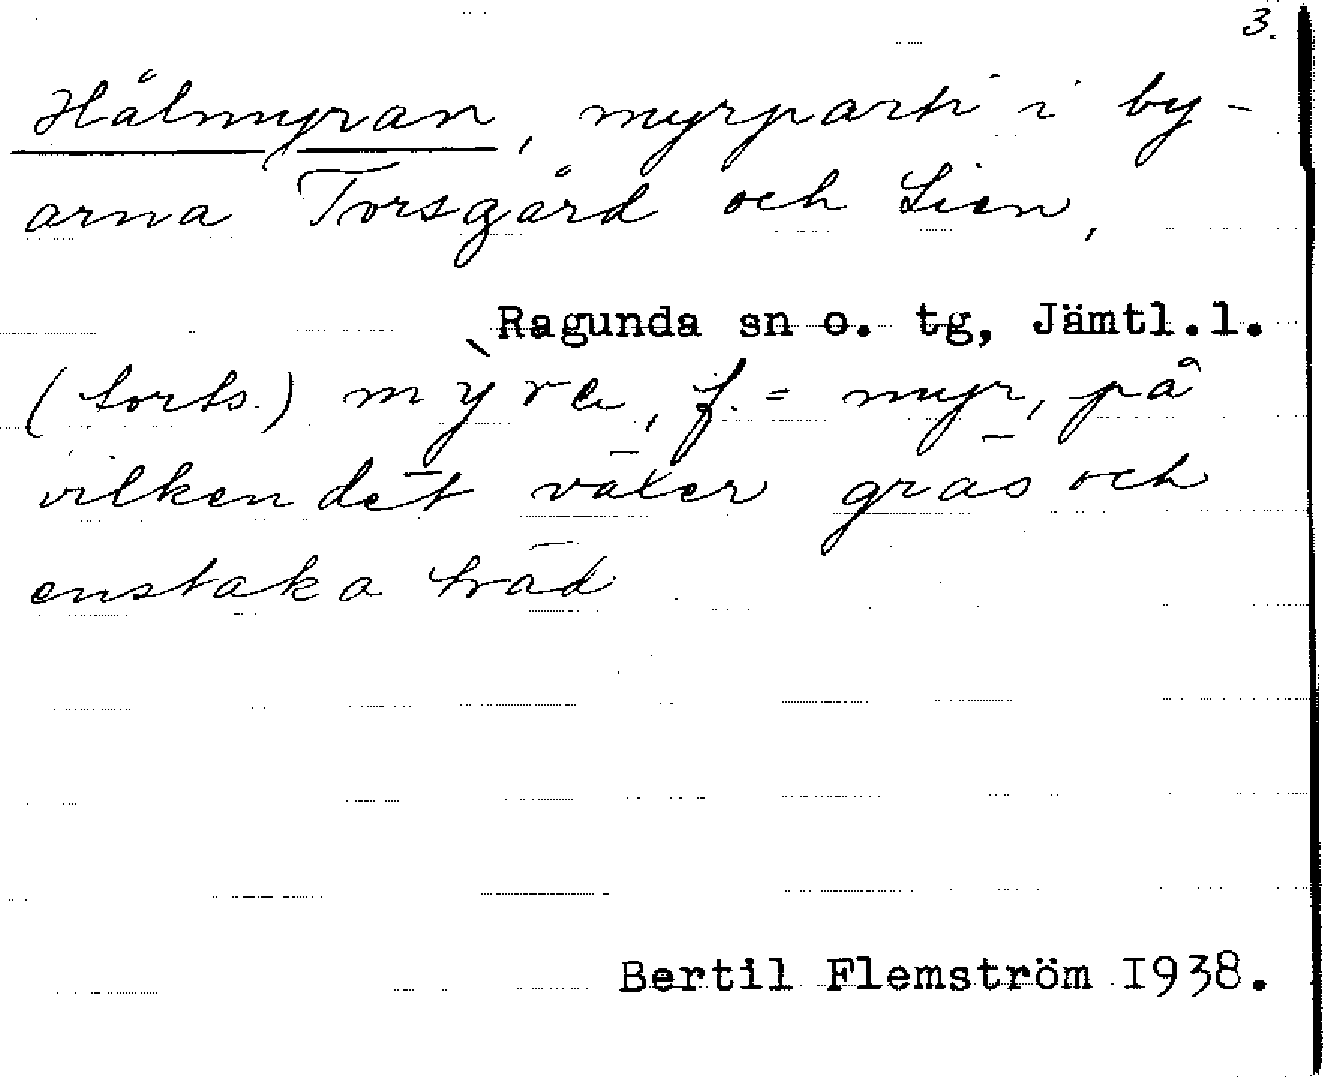 3.
Hålmyran, myrparti i by-
arna Torsgård och Lien,
Ragunda sn o. tg, Jämtl.l.
(forts.) mỳra, f. = myr, på
vilken det växer gräs och
enstaka träd
Bertil Flemström 1938.